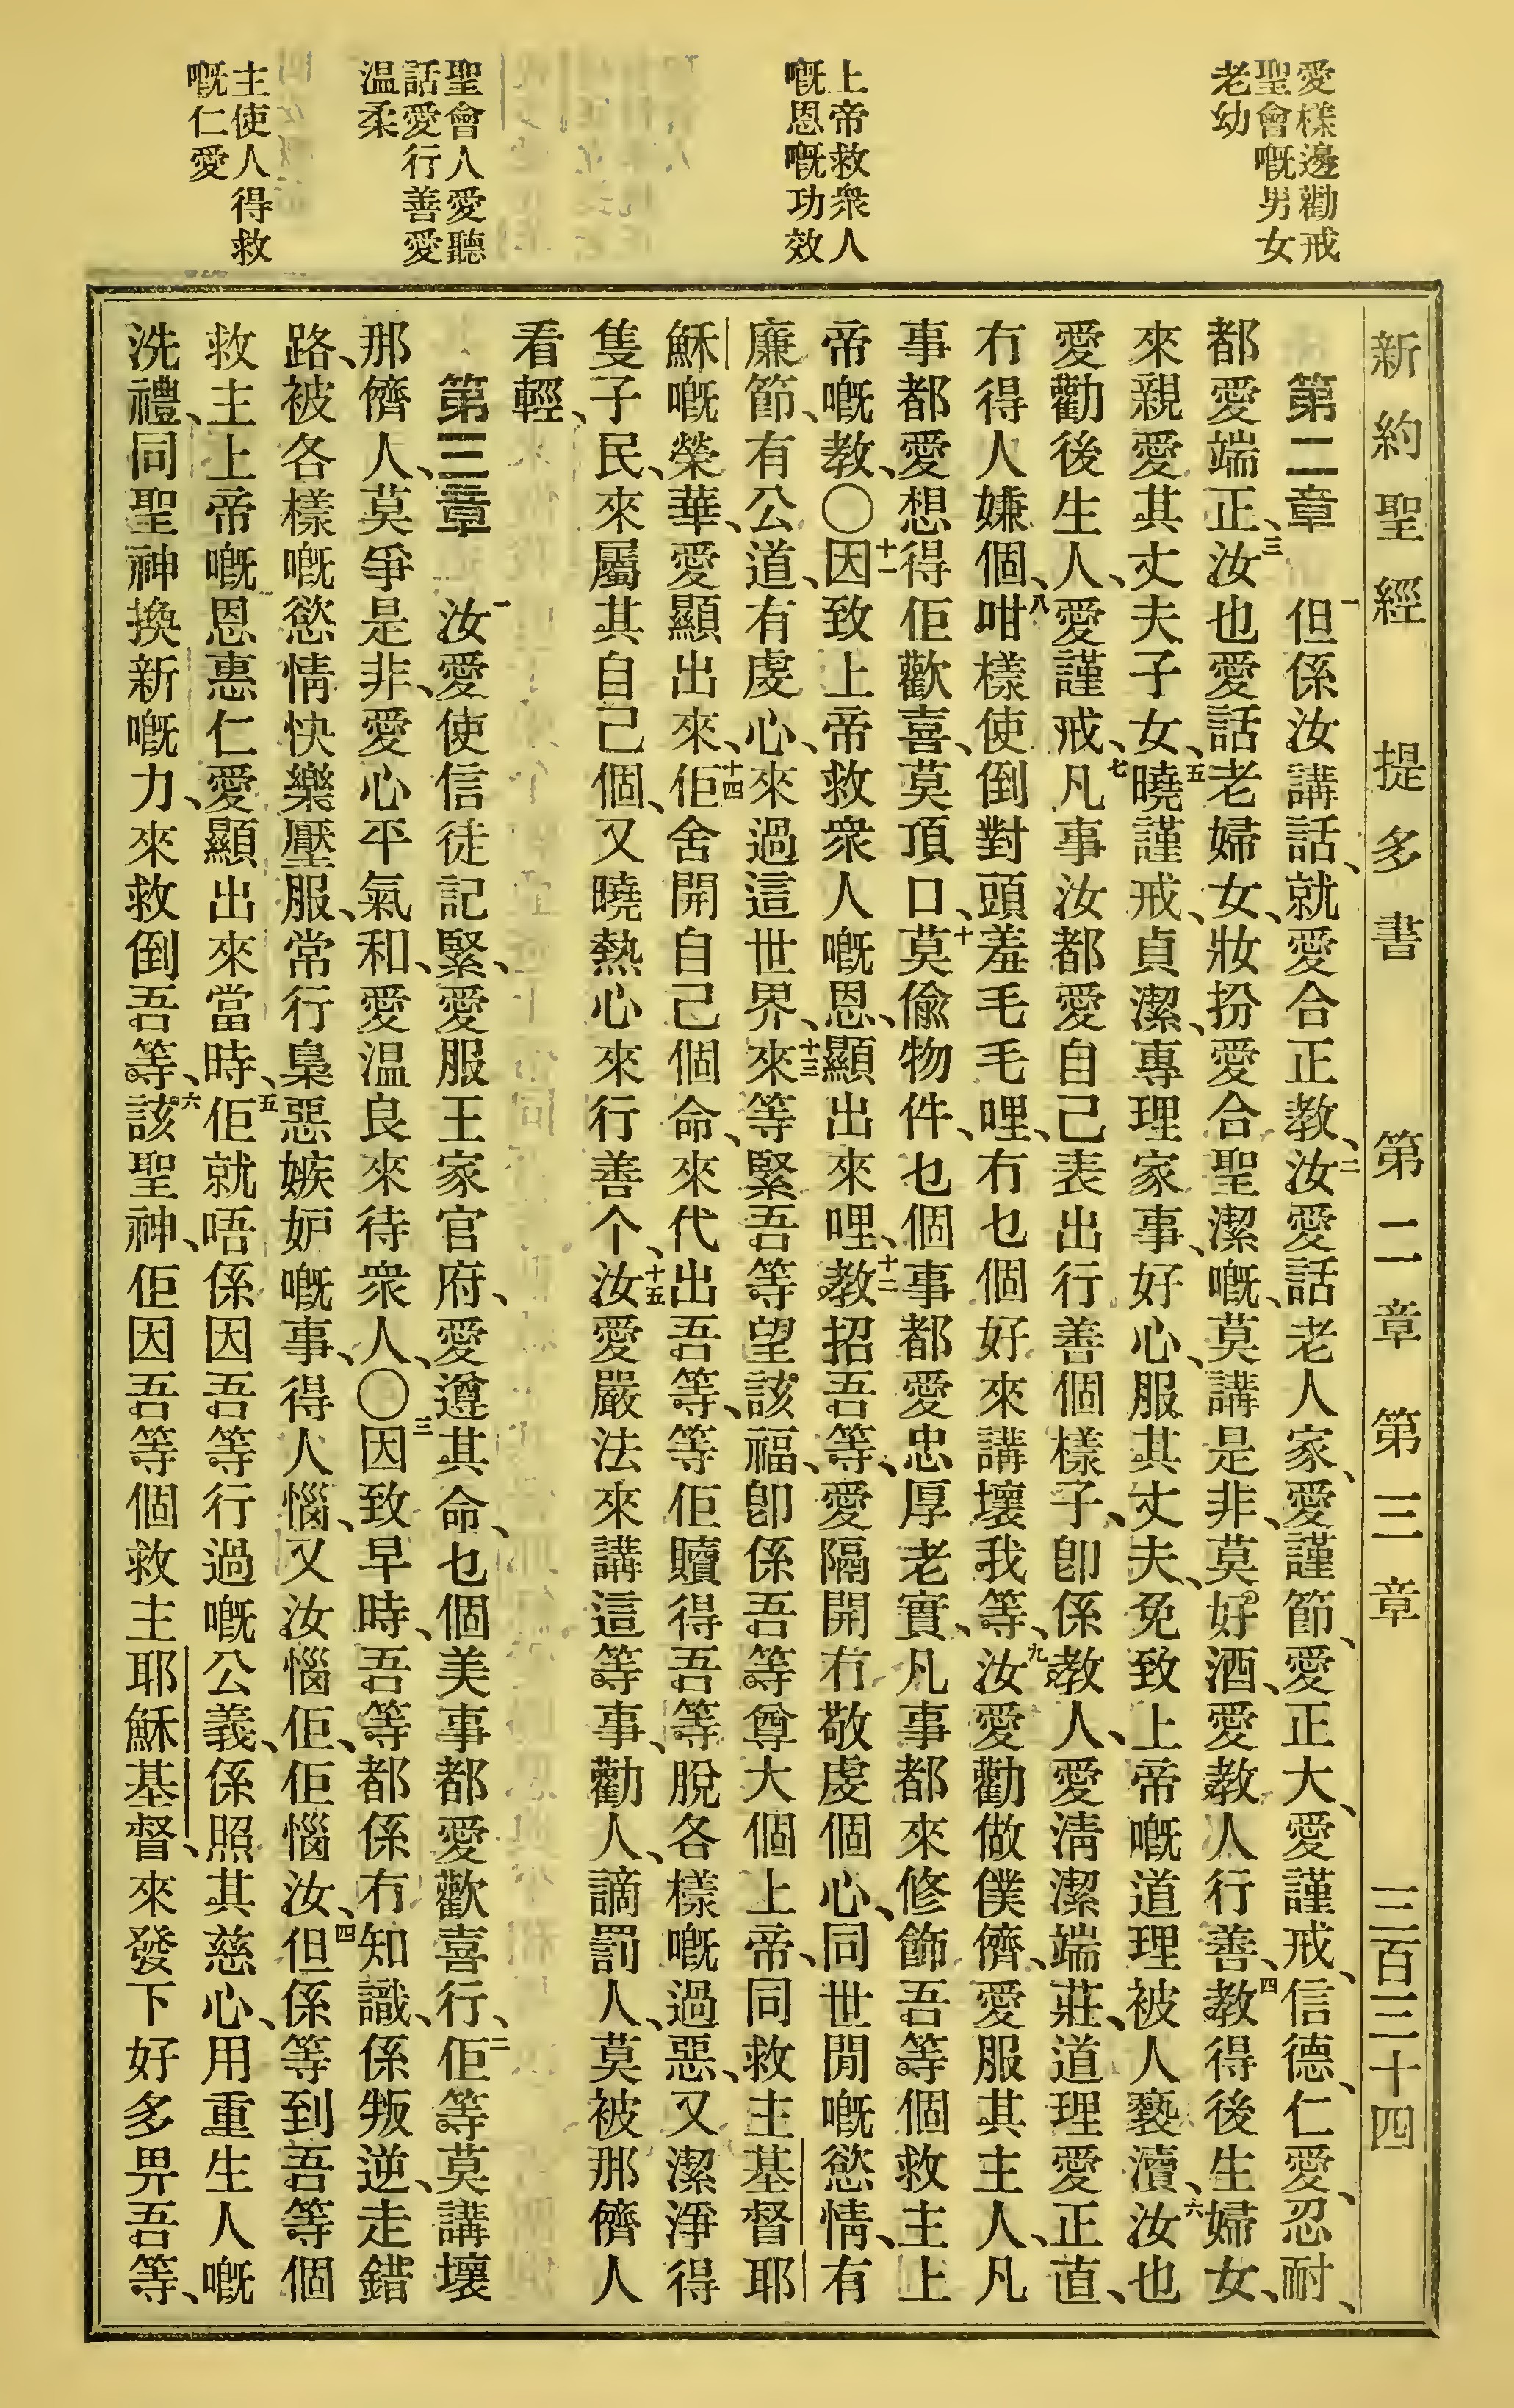 愛樣邊勸戒
聖會嘅男女
老幼
上帝救衆人
嘅恩嘅功效
聖會人愛聽
話愛行善愛
温柔
主使人得救
嘅仁愛
新約聖經 提多書 第二章 第三章 三百三十四
第二章 一但係汝講話、就愛合正教、二汝愛話老人家、愛謹節、愛正大、愛謹戒、信德、仁愛、忍耐、
都愛端正、三汝也愛話老婦女、妝扮愛合聖潔嘅、莫講是非、莫好酒、愛教人行善、四教得後生婦女、
來親愛其丈夫子女、五曉謹戒、貞潔、專理家事、好心、服其丈夫、免致上帝嘅道理被人褻瀆、六汝也
愛勸後生人、愛謹戒、七凡事汝都愛自己表出行善個樣子、卽係教人、愛淸潔端莊、道理愛正直、
冇得人嫌個、八咁樣使倒對頭羞毛毛哩、冇乜個好來講壞我等、九汝愛勸做僕儕、愛服其主人、凡
事都愛想得佢歡喜、莫頂口、十莫偸物件、乜個事都愛忠厚老實、凡事都來修飾吾等個救主上
帝嘅教、〇十一因致上帝救衆人嘅恩、顯出來哩、十二教招吾等、愛隔開冇敬虔個心、同世間嘅慾情、有
廉節、有公道、有虔心、來過這世界、十三來等緊吾等望該福、卽係吾等尊大個上帝、同救主基督耶
穌嘅榮華、愛顯出來、十四佢舍開自己個命、來代出吾等、等佢贖得吾等脫各樣嘅過惡、又潔淨得
隻子民、來屬其自己個、又曉熱心來行善个、十五汝愛嚴法來講這等事、勸人、謫罰人、莫被那儕人
看輕、
第三章 一汝愛使信徒記緊、愛服王家官府、愛遵其命、乜個美事都愛歡喜行、二佢等莫講壞
那儕人、莫爭是非、愛心平氣和、愛温良來待衆人、〇三因致早時、吾等都係冇知識、係叛逆、走錯
路、被各樣嘅慾情快樂壓服、常行梟惡嫉妒嘅事、得人惱、又汝惱佢、佢惱汝、四但係等到吾等個
救主上帝嘅恩惠仁愛顯出來當時、五佢就唔係因吾等行過嘅公義、係照其慈心、用重生人嘅
洗禮、同聖神換新嘅力、來救倒吾等、六該聖神、佢因吾等個救主耶穌基督、來發下好多畀吾等、